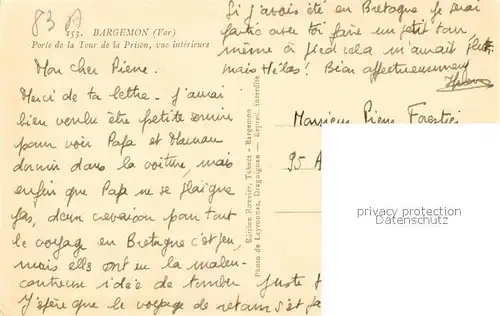 83 A
153. BARGEMON (Var)
Porte de la Tour de la Prison, vue intérieure
Mon cher Pierre.
Merci de ta lettre. J'aurai
bien voulu être petite souris
pour voir Papa et Maman
dormir dans la voiture, mais
enfin que Papa ne se plaigne
pas, deux crevaisons pour tout
le voyage en Bretagne c'est peu,
mais elles ont eu la malen-
contreuse idée de tomber juste
J'espère que le voyage de retour s'est
Si j'avais été en Bretagne je serai
partie avec toi faire un petit tour,
même à pied cela m'aurait plu.
mais Hélas! Bien affectueusement
Edition Bouvier, Tabacs - Bargemon
Photo de Leyronnas, Draguignan — Reprod. interdite
Monsieur Pierre
95 A
privacy protection
Datenschutz